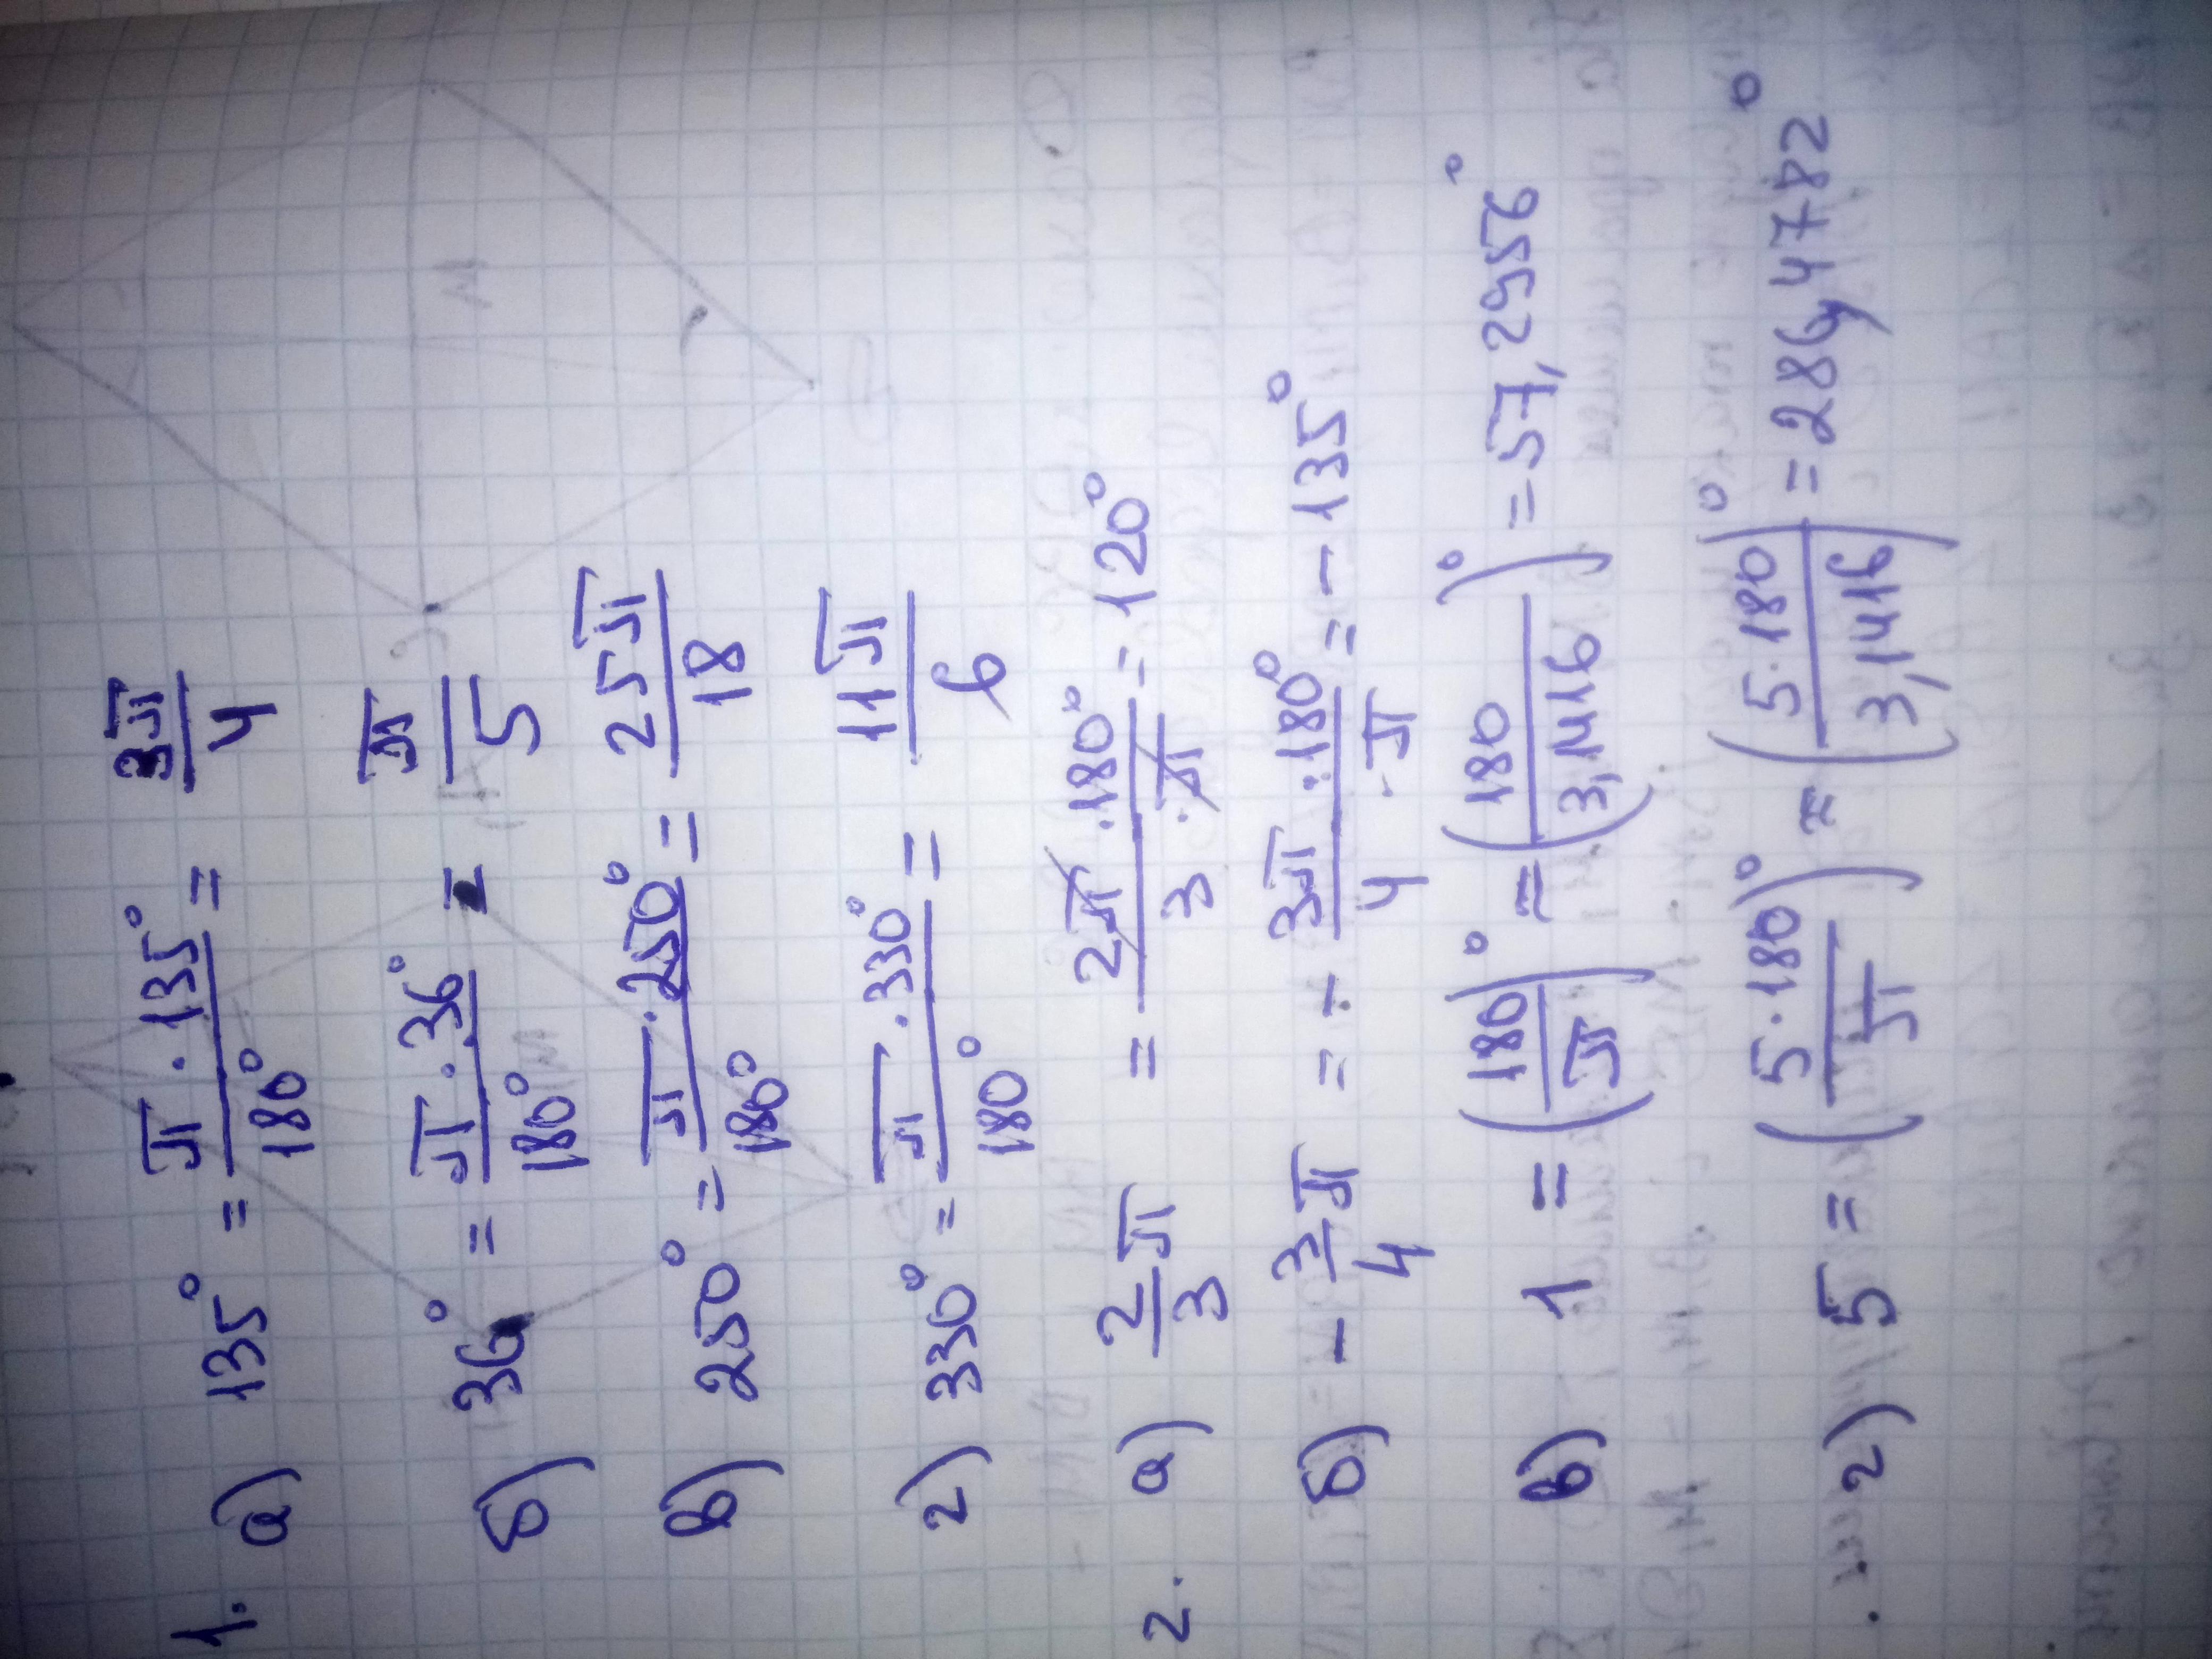 1. а) 135° = π · 135° / 180° = 3π / 4
б) 36° = π · 36° / 180° = π / 5
в) 250° = π · 250° / 180° = 25π / 18
г) 330° = π · 330° / 180° = 11π / 6
2. а) 2/3 π = 2π · 180° / 3 · π = 120°
б) - 3/4 π = - 3π · 180° / 4 · π = - 135°
в) 1 = (180 / π)° ≈ (180 / 3,1416)° = 57,2956°
г) 5 = (5 · 180 / π)° ≈ (5 · 180 / 3,1416)° = 286,4782°